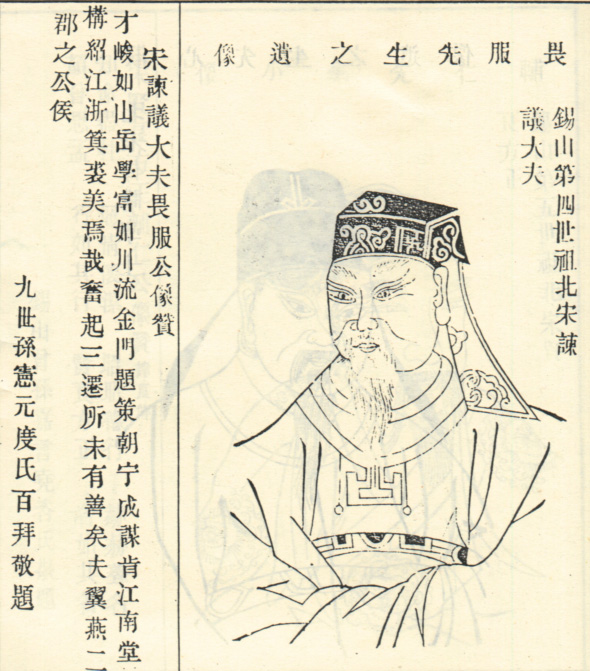 畏服先生之遺像
錫山第四世祖北宋諫
議大夫
宋諫議大夫畏服公像贊
才峻如山岳學富如川流金門題策朝宁成謀肯江南堂
構紹江浙箕裘美焉哉奮起三遷所未有善矣夫翼燕二
郡之公侯
九世孫憲元度氏百拜敬題